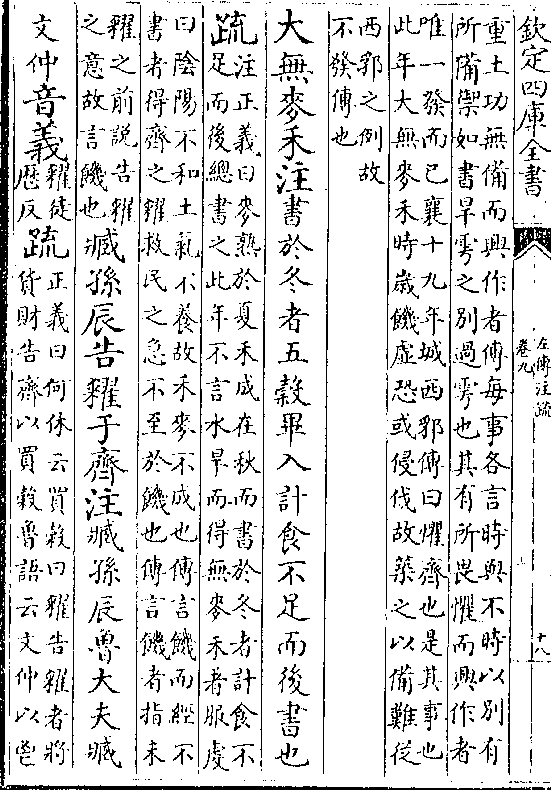 欽定四庫全書
左傳注疏
卷九
十八
重土功無備而興作者傳每事各言時與不時以別有
所備禦如書旱雩之別過雩也其有所畏懼而興作者
唯一發而已襄十九年城西郛傳曰懼齊也是其事也
此年大無麥禾時歲饑虛恐或侵伐故築之以備難從
西郛之例故
不發傳也
大無麥禾注書於冬者五穀畢入計食不足而後書也
疏注正義曰麥熟於夏禾成在秋而書於冬者計食不
足而後總書之此年不言水旱而得無麥禾者服虔
曰陰陽不和土氣不養故禾麥不成也傳言饑而經不
書者得齊之糴救民之急不至於饑也傳言饑者指未
糴之前說告糴
之意故言饑也臧孫辰告糴于齊注臧孫辰魯大夫臧
文仲音義糴徒
歴反疏正義曰何休云買穀曰糴告糴者將
貨財告齊以買穀魯語云文仲以鬯